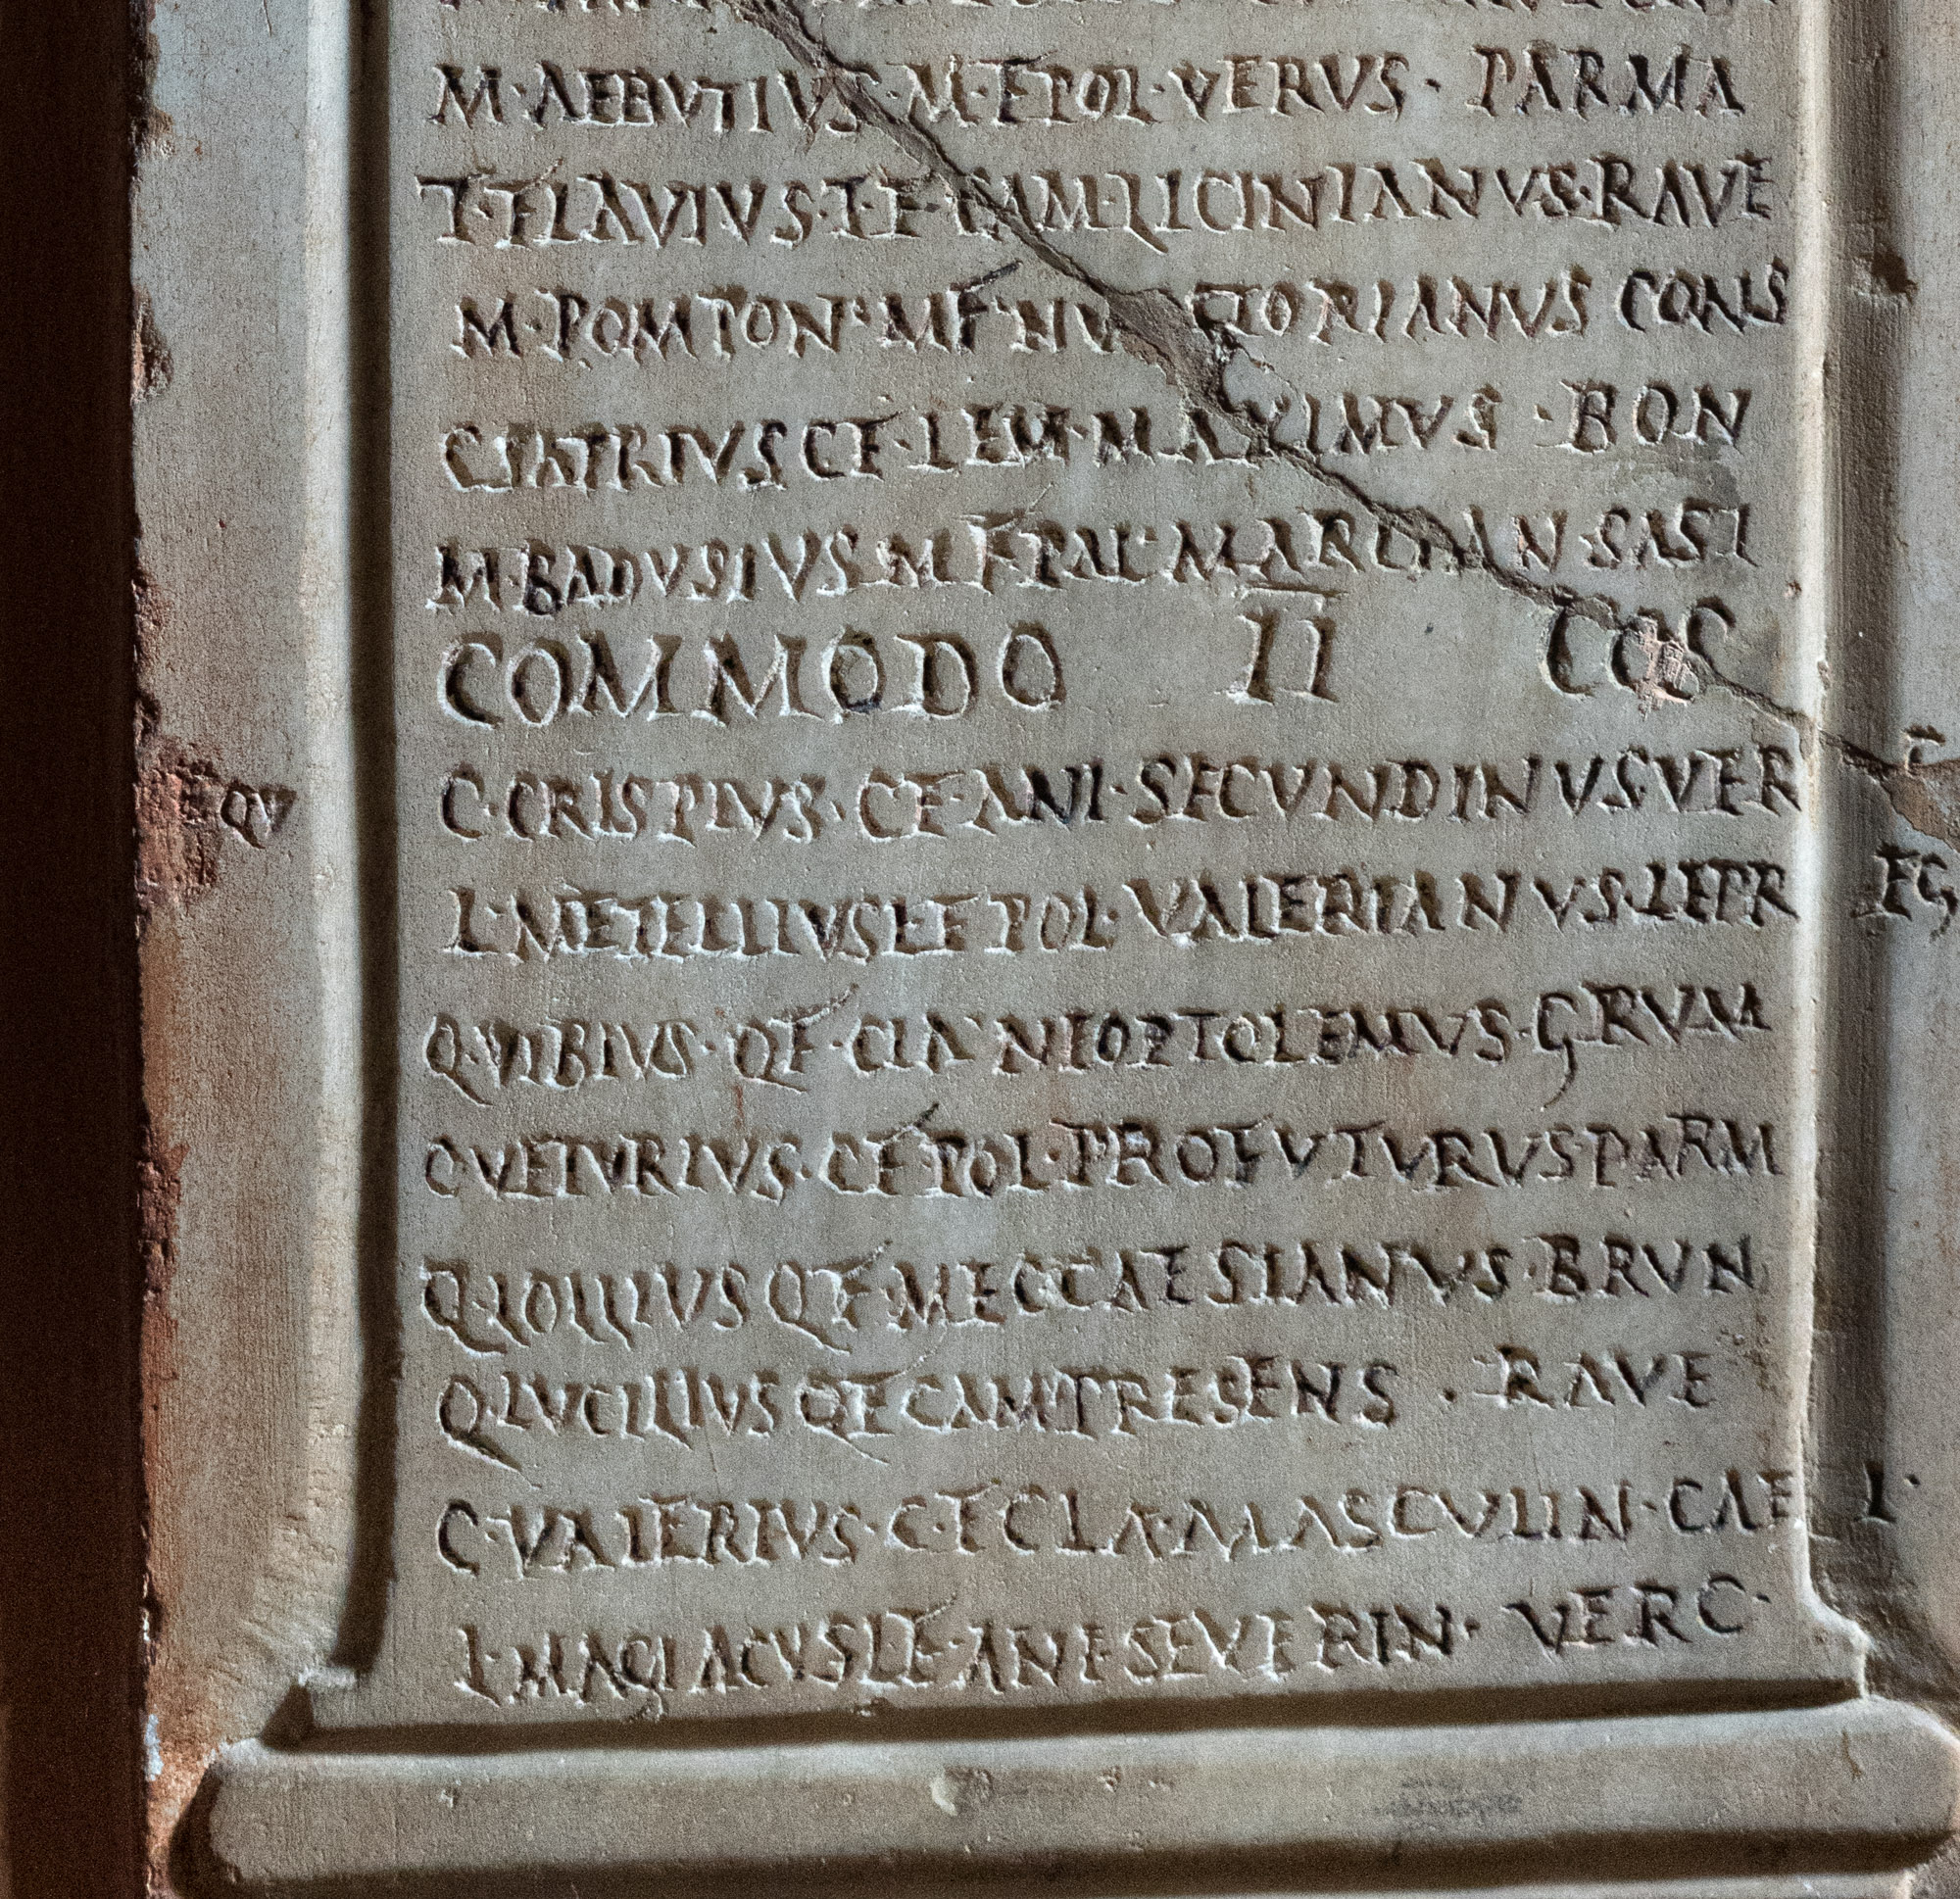 M·AEBUTIVS·M·F·POL·VERVS·PARMA
T·FLAVIVS·T·F·CAM·LICINIANVS·RAVE
M·POMPON·M F· TORIANVS CONS
C SATRIVS C F·LEM·MAXIMVS·BON
M·BADVSIVS M F·PAL·MARCIAN·SAST
COMMODO II COS
QV C·CRISPIVS·C F·ANI·SECVNDINVS·VER
L·METELLIVS L F POL·VALERIANVS·LEPR EG
Q·VIBIVS·Q F·CLA·NEOPTOLEMVS·GRVM
C VETVRIVS·C F POL·PROFVTVRVS PARM
Q·LOLLIVS Q F·MEC CAESIANVS·BRVN
Q·LVCILIVS Q F CAM PRESENS·RAVE
C·VALERIVS·C·F CLA·MASCVLIN·CAE L·
L·MAGIACVS L F·ANE SEVERIN·VERC·